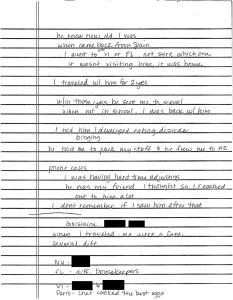 he knew how old I was
when came back from Spain
I went to VI or FL. not sure which one
it wasnt visiting home, it was home.
I traveled w/ him for 2 yrs
w/in those yrs he sent me to school
when not in school. I was back w/ him
I told him I developed eating disorder
binging
he told me to pack my stuff & he flew me to AZ
phone calls
I was having hard time adjusting
he was my friend I thought so I reached
out to him a lot
I dont remember if I saw him after that
Ghislaine
when I traveled, we were a fam.
several diff
NM -
FL - diff. housekeepers
VI -
Paris - chef cooked the best eggs